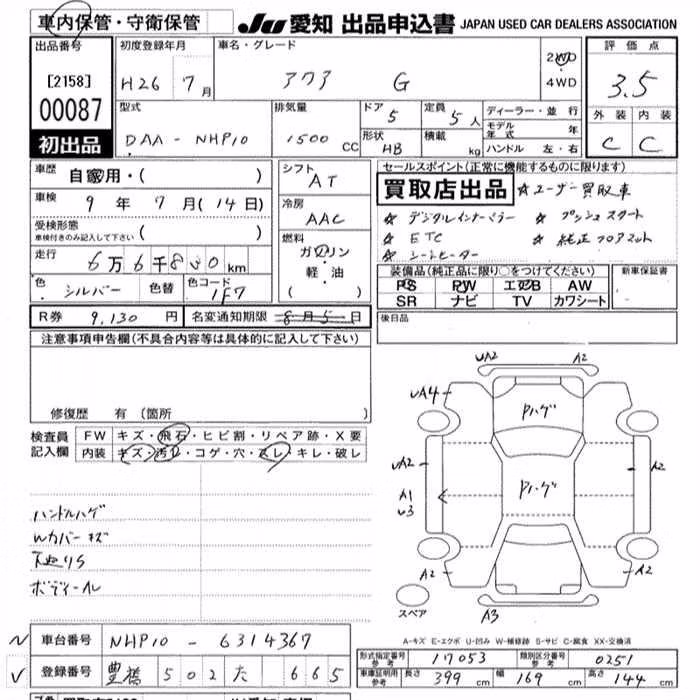 車内保管・守衛保管
JU 愛知 出品申込書 JAPAN USED CAR DEALERS ASSOCIATION
出品番号
[2158]
00087
初出品
初度登録年月
H26 7月
車名・グレード
アクア G
2WD
4WD
評価点
3.5
外装 内装
C C
型式
DAA-NHP10
排気量
1500 CC
ドア 5
形状 HB
定員 5人
積載 kg
ディーラー・並行
モデル年式 年
ハンドル 左・右
車歴 自家用・( )
車検 9年 7月(14日)
受検形態
車検付きのみ記入して下さい ( )
走行 6万6千800km
色 シルバー 色替 色コード 1F7
シフト AT
冷房 AAC
燃料
ガソリン
軽・油
( )
セールスポイント(正常に機能するものに限ります)
買取店出品 ☆ユーザー買取車
☆ デジタルインナーミラー ☆ プッシュスタート
☆ ETC ☆ 純正フロアマット
☆ シートヒーター
装備品(純正品に限り○をつけてください)
PS PW エアB AW
SR ナビ TV カワシート
新車保証書
R券 9,130円 名変通知期限 8月5日
後日品
注意事項申告欄(不具合内容等は具体的に記入して下さい)
修復歴 有(箇所 )
検査員記入欄
FW キズ・飛石・ヒビ割・リペア跡・X要
内装 キズ・汚れ・コゲ・穴・スレ・キレ・破レ
ハンドルハゲ
Wカバーキズ
下廻りS
UA2 A2
UA4
Pハゲ
UA2 A2
Pハゲ
A1
U3
A2 A2
A3
スペア
A-キズ E-エクボ U-凹み W-補修跡 S-サビ C-腐食 XX-交換済
車台番号 NHP10-6314367
登録番号 豊橋 502 た 665
形式指定番号 参考 17053 類別区分番号 参考 0251
車庫証明用 参考 長さ 399cm 幅 169cm 高さ 144cm